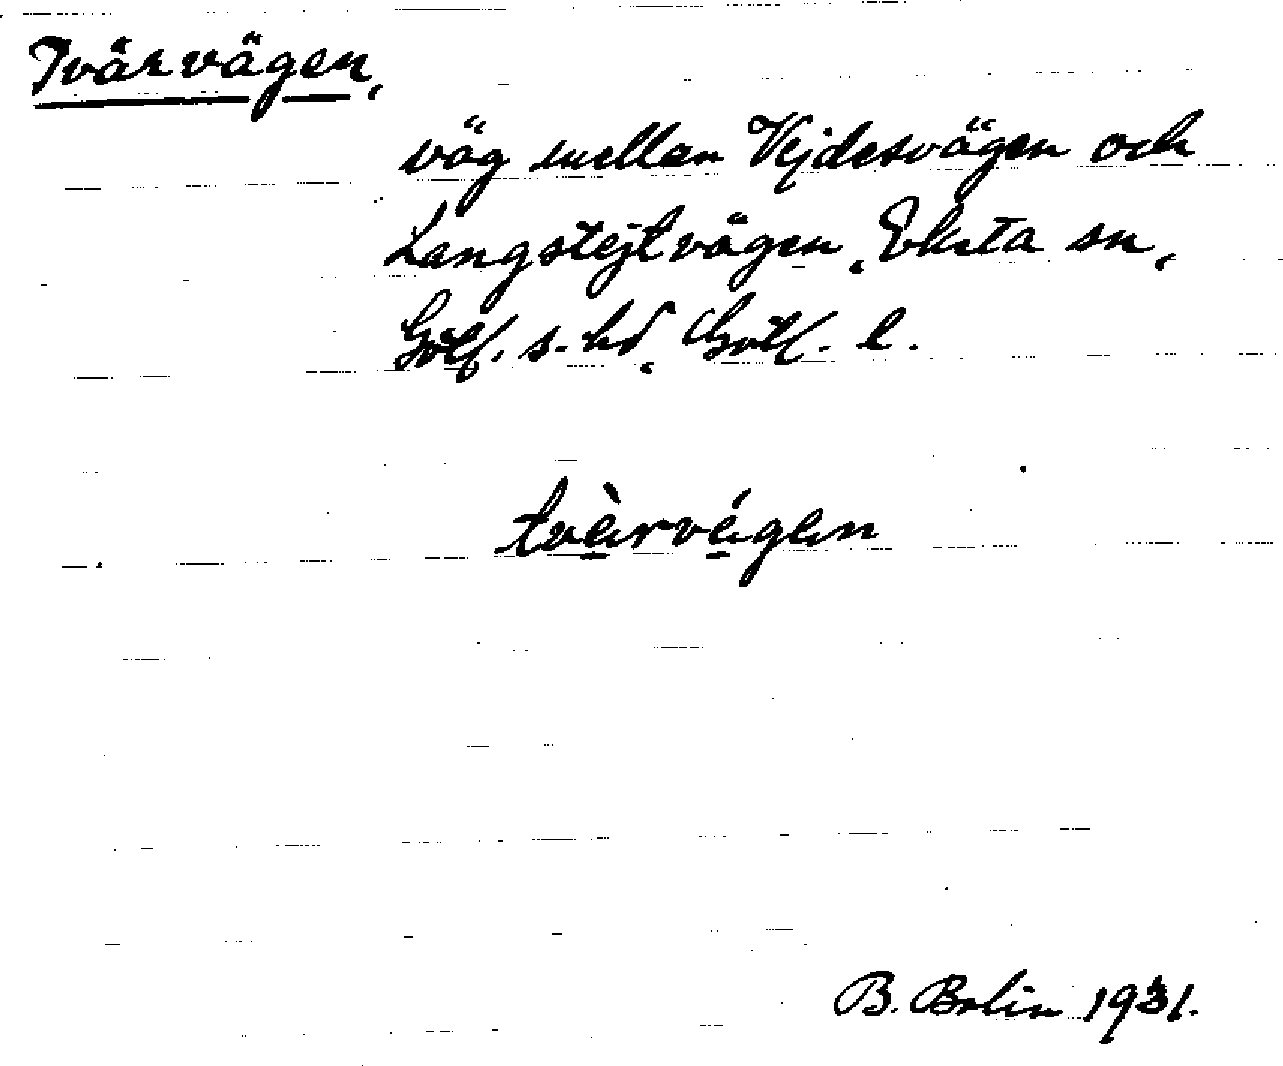 Tvärvägen,
väg mellan Vejdesvägen och
Langstejtvägen, Eksta sn,
Gotl. s. hd, Gotl. l.
tvèrvégen
B. Bolin 1931.